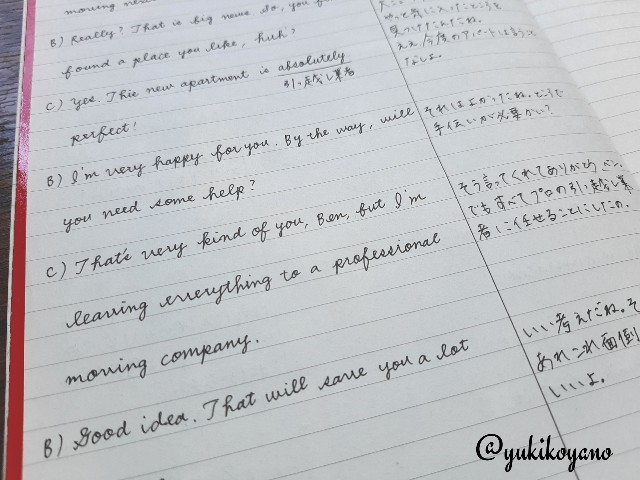 moving new
B) Really? That is big news. So, you f
found a place you like, huh?
C) Yes. This new apartment is absolutely
引っ越し業者
perfect!
B) I'm very happy for you. By the way, will
you need some help?
C) That's very kind of you, Ben, but I'm
leaving everything to a professional
moving company.
B) Good idea. That will save you a lot
見つけたんだね。
ええ、今度のアパートは
なしよ。
それはよかったね。ところで
手伝いが必要かい?
そう言ってくれてありがとう、ベン。
でもすべてプロの引っ越し業
者に任せることにしたの。
いい考えだね。そ
あれこれ面倒
いいよ。
@yukikoyano